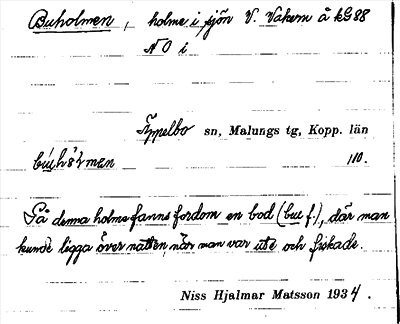 Buholmen, holme i sjön V. Vakern å kG88
NO i
Äppelbo sn, Malungs tg, Kopp. län
110.
På denna holme fanns fordom en bod (bu f.), där man
kunde ligga över natten, när man var ute och fiskade.
Niss Hjalmar Matsson 1934.